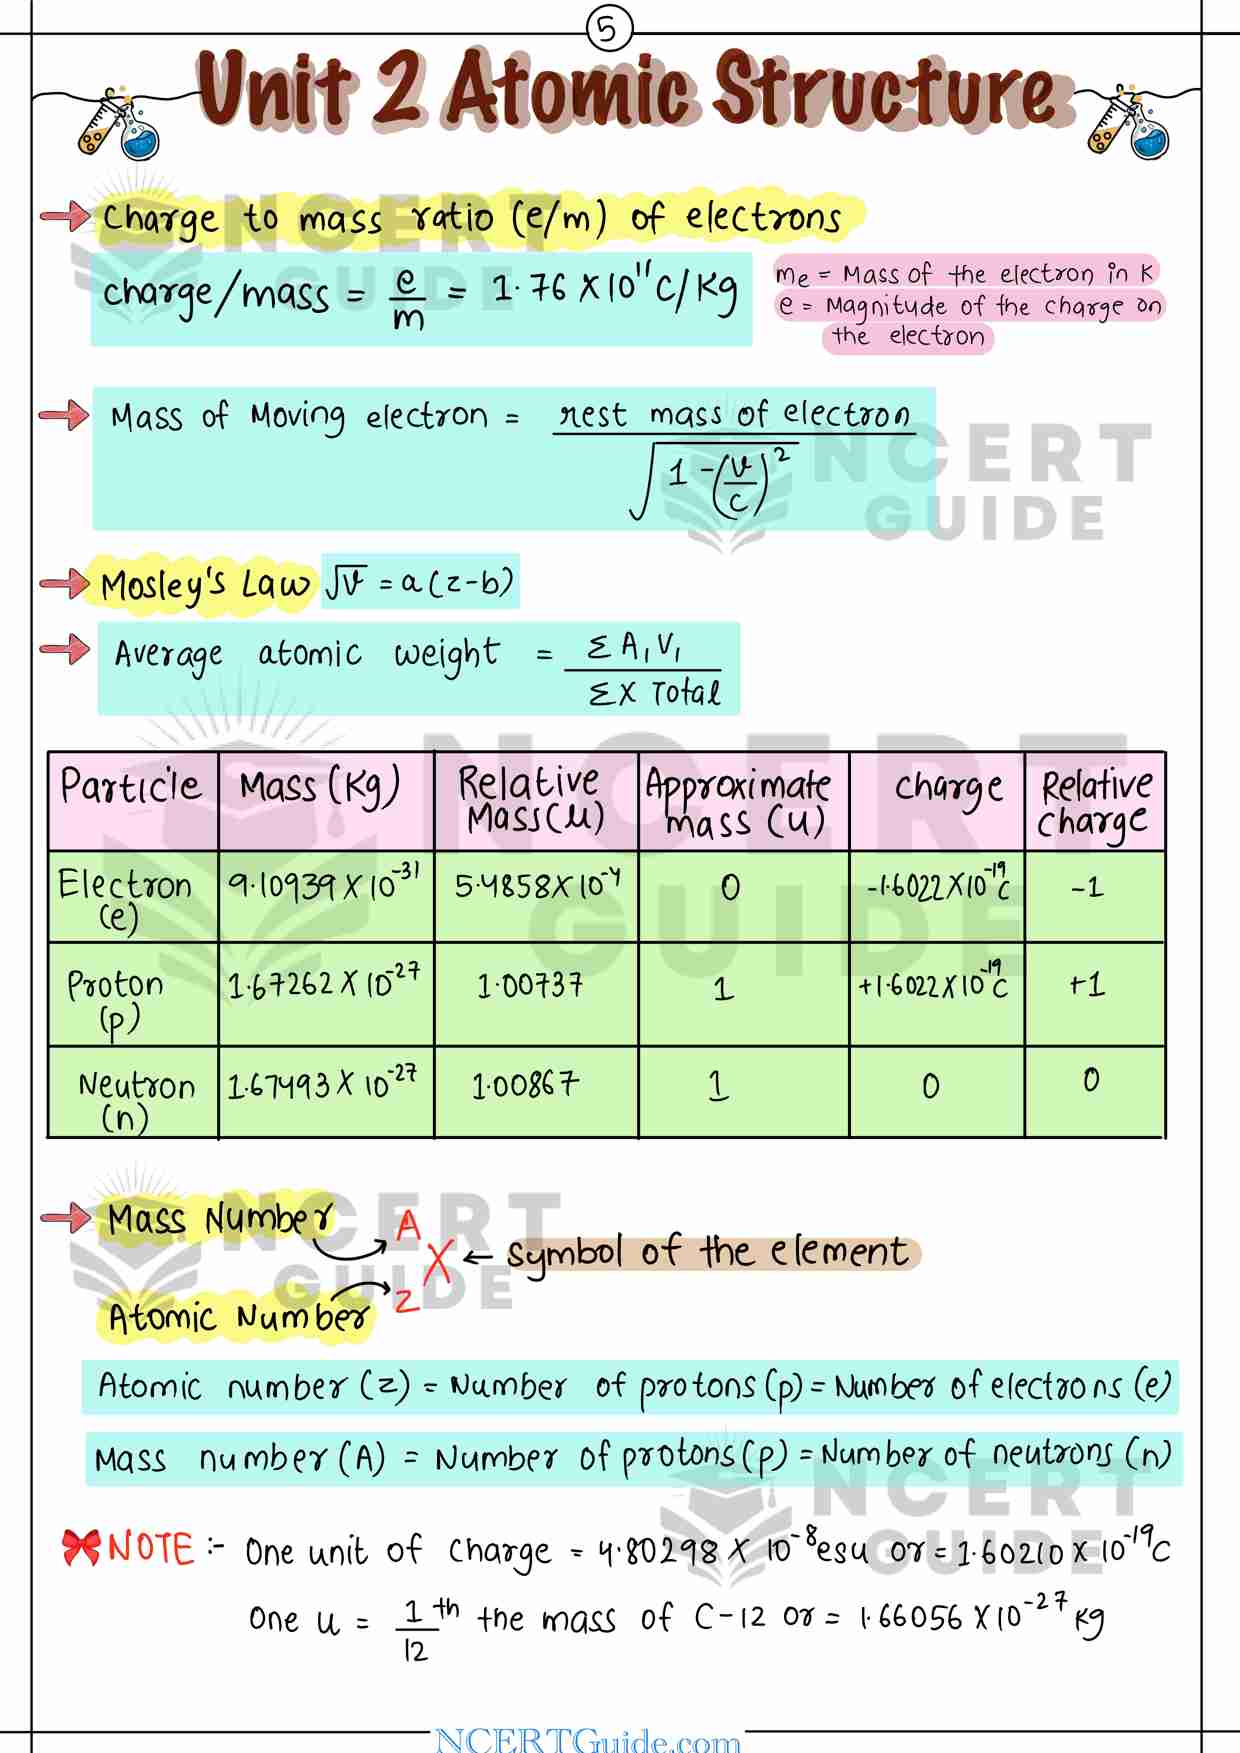 5
Unit 2 Atomic Structure
Charge to mass ratio (e/m) of electrons
charge/mass = e/m = 1.76 X 10¹¹ C/Kg
me = Mass of the electron in K
e = Magnitude of the charge on
the electron
Mass of Moving electron = rest mass of electron / √1-(v/c)²
Mosley's Law √v = a(z-b)
Average atomic weight = ΣA₁V₁ / ΣX Total
Particle Mass (Kg) Relative Mass(u) Approximate mass (u) charge Relative charge
Electron (e) 9.10939 X 10⁻³¹ 5.4858X 10⁻⁴ 0 -1.6022X10⁻¹⁹C -1
Proton (p) 1.67262 X 10⁻²⁷ 1.00737 1 +1.6022X10⁻¹⁹C +1
Neutron (n) 1.67493X 10⁻²⁷ 1.00867 1 0 0
Mass Number A
X ← symbol of the element
Atomic Number z
Atomic number (z) = Number of protons (p) = Number of electrons (e)
Mass number (A) = Number of protons (p) = Number of neutrons (n)
NOTE :- One unit of charge = 4.80298 X 10⁻⁸esu or = 1.60210 X 10⁻¹⁹C
One u = 1/12 th the mass of C-12 or = 1.66056 X10⁻²⁷ kg
NCERT GUIDE
NCERT GUIDE
NCERT GUIDE
NCERT GUIDE
NCERT GUIDE
NCERTGuide.com